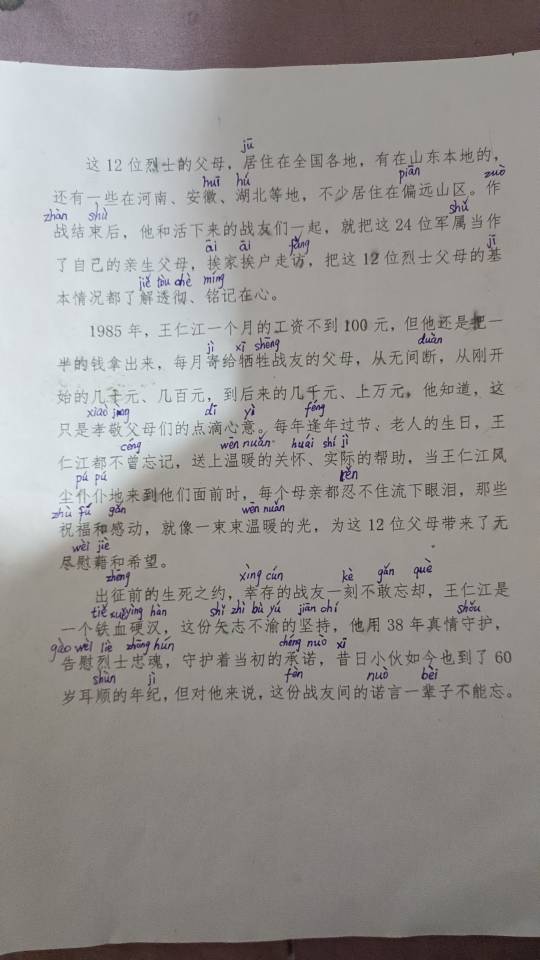 jū
这 12 位烈士的父母，居住在全国各地，有在山东本地的，
huī hú piān zuò
还有一些在河南、安徽、湖北等地，不少居住在偏远山区。作
zhàn shù shǔ
战结束后，他和活下来的战友们一起，就把这 24 位军属当作
āi āi fǎng jī
了自己的亲生父母，挨家挨户走访，把这 12 位烈士父母的基
jiě tòu chè míng
本情况都了解透彻、铭记在心。
1985 年，王仁江一个月的工资不到 100 元，但他还是把一
半的钱拿出来，每月寄给牺牲战友的父母，从无间断，从刚开
jì xī shēng duàn
始的几十元、几百元，到后来的几千元、上万元。他知道，这
xiào jìng dī yì féng
只是孝敬父母们的点滴心意。每年逢年过节、老人的生日，王
céng wēn nuǎn huái shí jì
仁江都不曾忘记，送上温暖的关怀、实际的帮助，当王仁江风
pú pú rěn
尘仆仆地来到他们面前时，每个母亲都忍不住流下眼泪，那些
zhù fú gǎn wēn nuǎn
祝福和感动，就像一束束温暖的光，为这 12 位父母带来了无
wèi jiè
尽慰藉和希望。
zhēng xìng cún kè gǎn què
出征前的生死之约，幸存的战友一刻不敢忘却，王仁江是
tiě xuě yìng hàn shǐ zhì bù yú jiān chí shǒu
一个铁血硬汉，这份矢志不渝的坚持，他用 38 年真情守护，
gào wèi liè zhōng hún chéng nuò xī
告慰烈士忠魂，守护着当初的承诺，昔日小伙如今也到了 60
shùn jì fèn nuò bèi
岁耳顺的年纪，但对他来说，这份战友间的诺言一辈子不能忘。